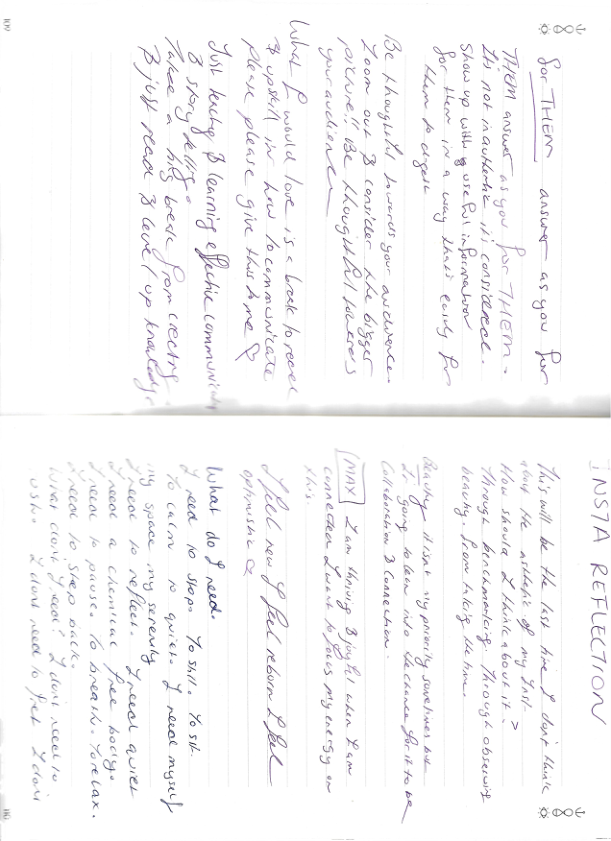 for THEM answer as you for
THEM answer as you for THEM -
Its not inauthentic its considered.
Show up with useful information
for them in a way thats easily for
them to digest
Be thoughtful towards your audience
Zoom out & consider the bigger
picture!! Be thoughtful towards
your audience
What I would love is a break to read
& upskill in how to communicate
please please give this to me ♡
Just teaching & learning effective communication
& story telling.
Take a big break from creating
& just read & level up knowledge
109
INSTA REFLECTION
This will be the last time I don't think
about the asthetic of my Insta
How should I think about it >
Through benchmarking. Through observing
beauty. From taking the time.
Beauty isnt my priority sometimes but
Im going to lean into the chance for it to be
Collaboration & connection.
MAX I am thriving & joyful when I am
connected I want to focus my energy on
this
I feel new I feel reborn I feel
optimistic
What do I need.
I need to stop. To still. To sit.
To calm to quiet. I need myself
my space my serenity
I need to reflect. I need quiet
I need a chemical free body.
I need to pause. To breath. To relax.
I need to step back.
What dont I need? I dont need to
rush. I dont need to I dont
110